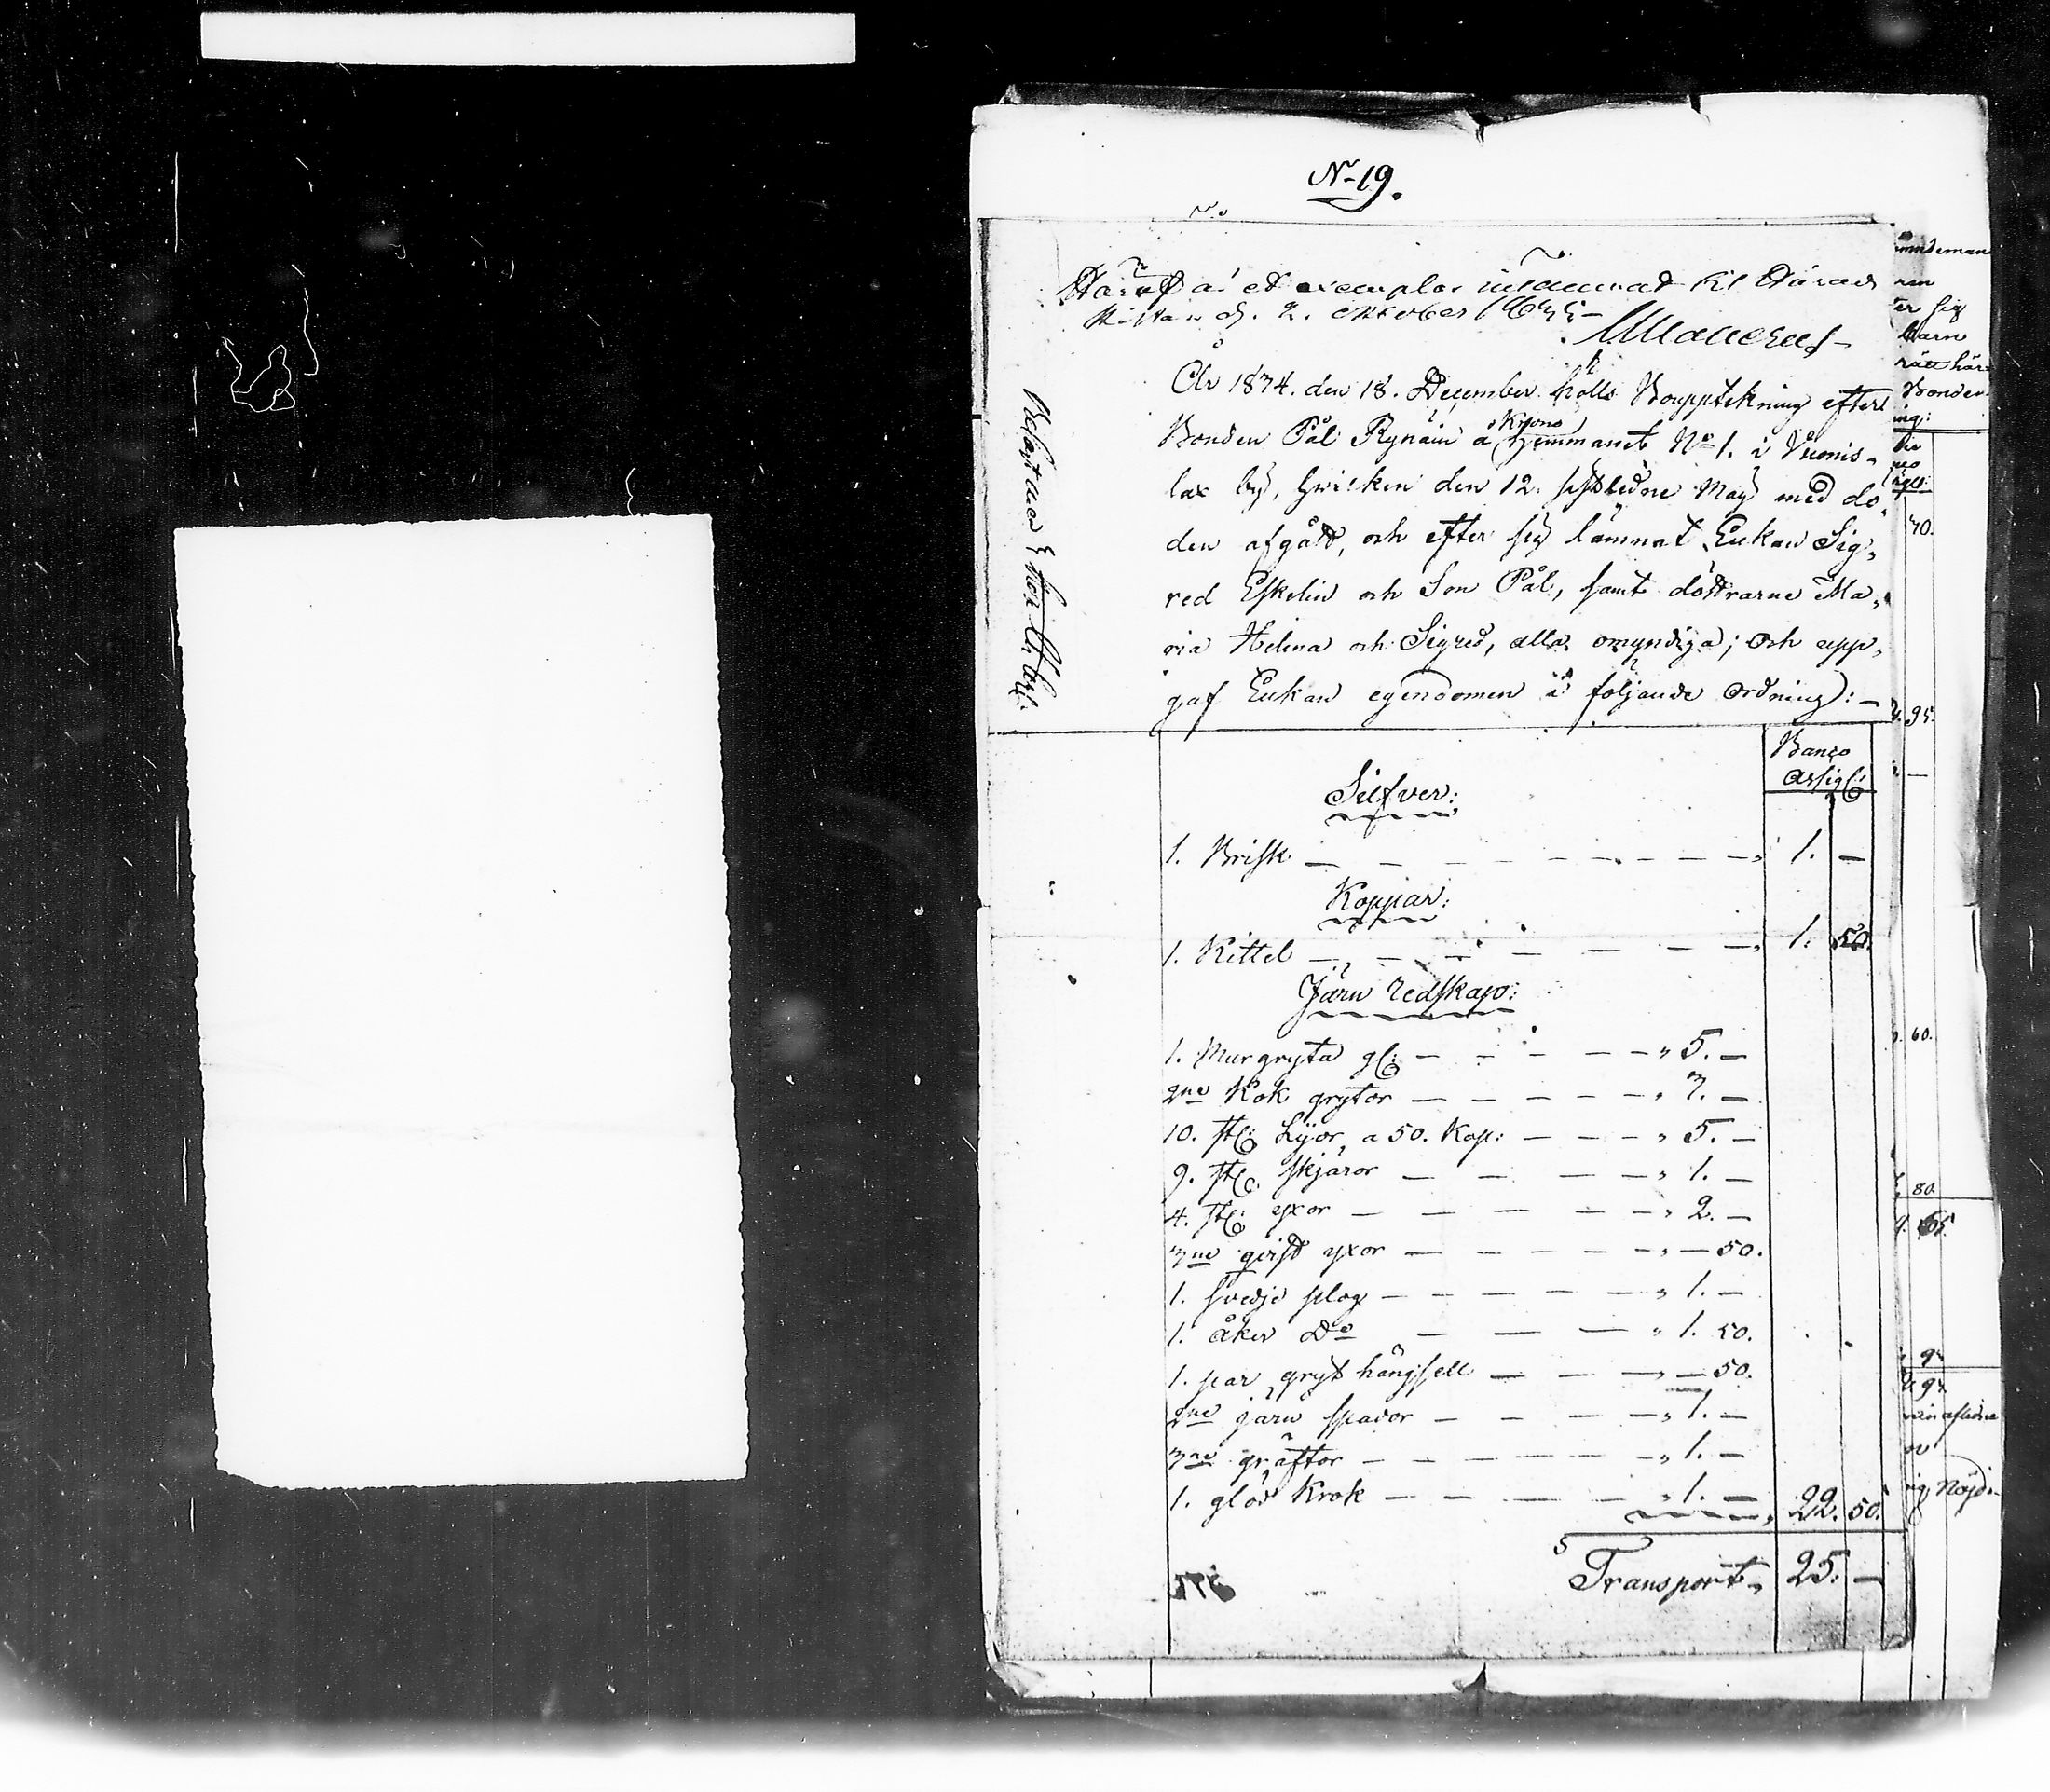 No 19.
Häraf är ett exemplar inlämnadt till Härads
Kistan d. 2. oktober
År 1834. den 18. December hölls Bouppteckning efter
Bonden Pål Rynäin å Krono hemmanet No 1. i Vuonis-
lax by, hvilken den 12. sistledne May med dö-
den afgådt, och efter sig lämnat Enkan Sig-
red Eskelin och Son Pål, samt döttrarne Ma-
ria Helena och Sigred, alla omyndiga; och upp-
gaf Enkan egendomen i följande ordning: —
Banco
Assig:
Silfver:
1. Brisk — 1. —
Koppar:
1. Kittel — 1. 50.
Järn redskap:
1. Murgryta gl: — 5. —
2ne Kok grytor — 7. —
10. st: Lijor a 50. Kop: — 5. —
9. st: skjäror — 1. —
4. st: yxor — 2. —
3ne qvist yxor — 50.
1. svedje plog — 1. —
1. åker Do — 1. 50.
1. par gryt hängsell — 50.
2ne järn spador — 1. —
3ne gräftor — 1. —
1. glöd krok — 1. — 22. 50.
Transport, 25. —
ter sig
barn
Bonden
70.
95.
60.
80.